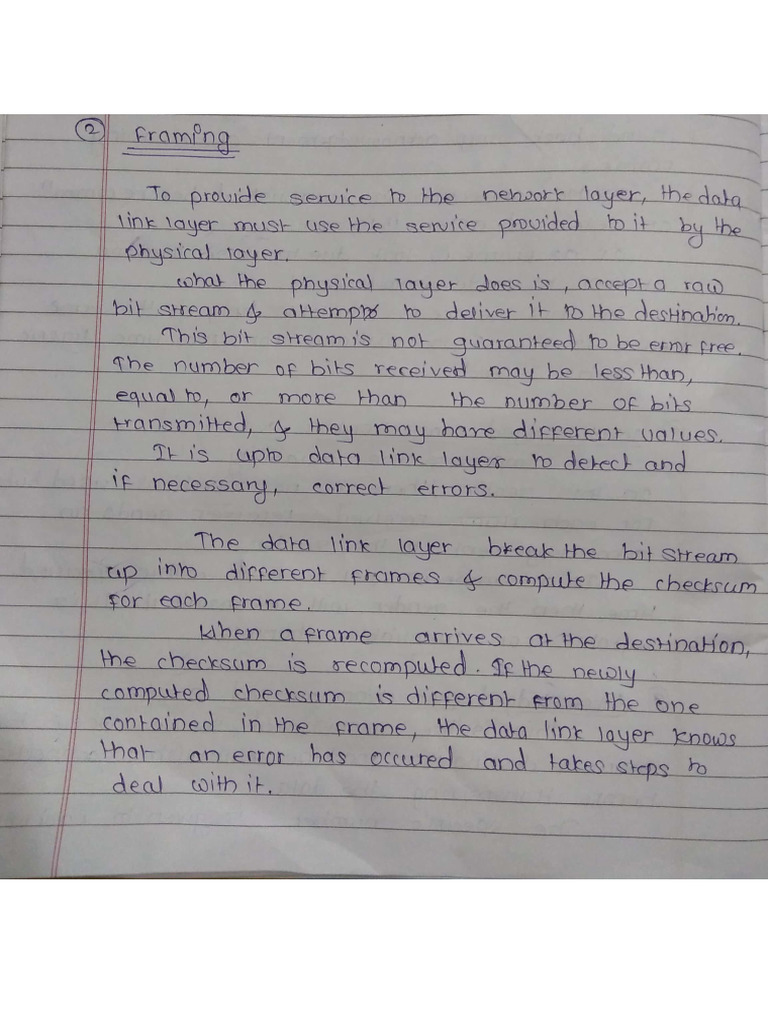 ② Framing
To provide service to the network layer, the data
link layer must use the service provided to it by the
physical layer.
What the physical layer does is, accept a raw
bit stream & attempts to deliver it to the destination.
This bit stream is not guaranteed to be error free.
The number of bits received may be less than,
equal to, or more than the number of bits
transmitted, & they may have different values.
It is upto data link layer to detect and
if necessary, correct errors.
The data link layer break the bit stream
up into different frames & compute the checksum
for each frame.
When a frame arrives at the destination,
the checksum is recomputed. If the newly
computed checksum is different from the one
contained in the frame, the data link layer knows
that an error has occured and takes steps to
deal with it.